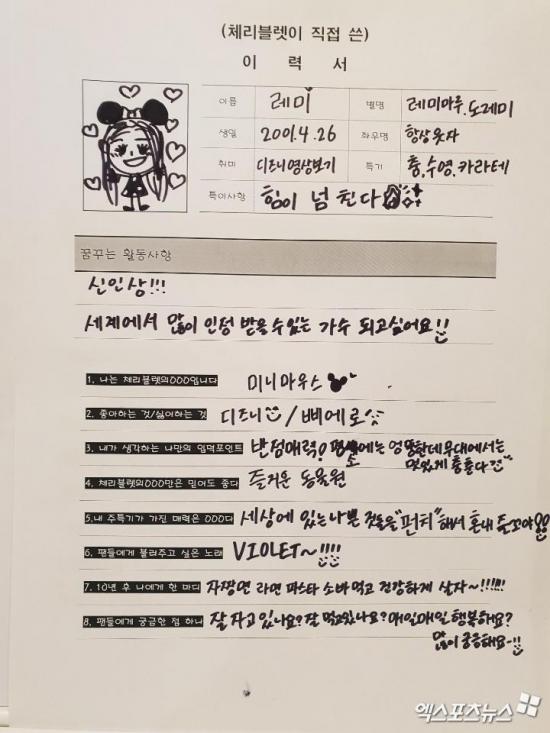 (체리블렛이 직접 쓴)
이 력 서
이름 레미 별명 레미마루, 도레미
생일 2001.4.26 좌우명 항상 웃자
취미 디즈니영상보기 특기 춤, 수영, 카라테
특이사항 힘이 넘친다
꿈꾸는 활동사항
신인상!!!
세계에서 많이 인정 받을 수 있는 가수 되고싶어요!!
1. 나는 체리블렛의OOO입니다 미니마우스
2. 좋아하는 것/싫어하는 것 디즈니 / 삐에로
3. 내가 생각하는 나만의 입덕포인트 반전매력! 평소에는 엉뚱한데 무대에서는
멋있게 춤춘다
4. 체리블렛의OOO만은 믿어도 좋다 즐거운 동물원
5.내 주특기가 가진 매력은 OOO다 세상에 있는 나쁜 것들을 "펀치"해서 혼내 줄꼬야
6. 팬들에게 불러주고 싶은 노래 VIOLET~!!!!
7. 10년 후 나에게 한 마디 자짱면 라면 파스타 소바 먹고 건강하게 살자~!!!!!!
8. 팬들에게 궁금한 점 하나 잘 자고 있나요? 잘 먹고있나요? 매일매일 행복해요?
많이 궁금해요~!!
엑스포츠뉴스